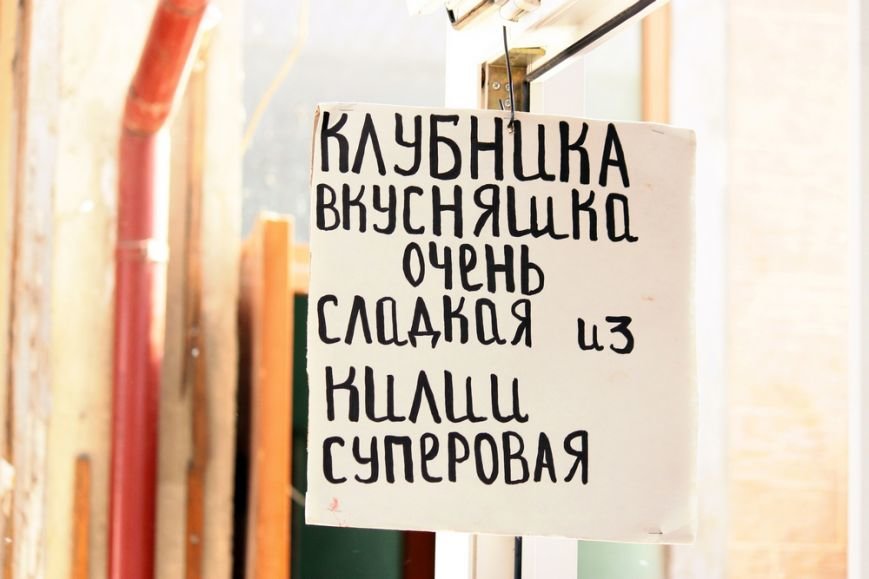 КЛУБНИКА
ВКУСНЯШКА
ОЧЕНЬ
СЛАДКАЯ из
КИЛИИ
СУПЕРОВАЯ